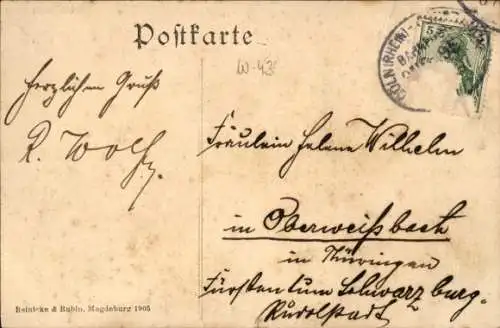 Postkarte
W-43
CÖLN (RHEIN)
5
Herzlichen Gruß
R. Wolf
Fräulein Helene Wilhelm
in Oberweißbach
in Thüringen
Fürstentum Schwarzburg-
Rudolstadt
Reinicke & Rubin, Magdeburg 1905